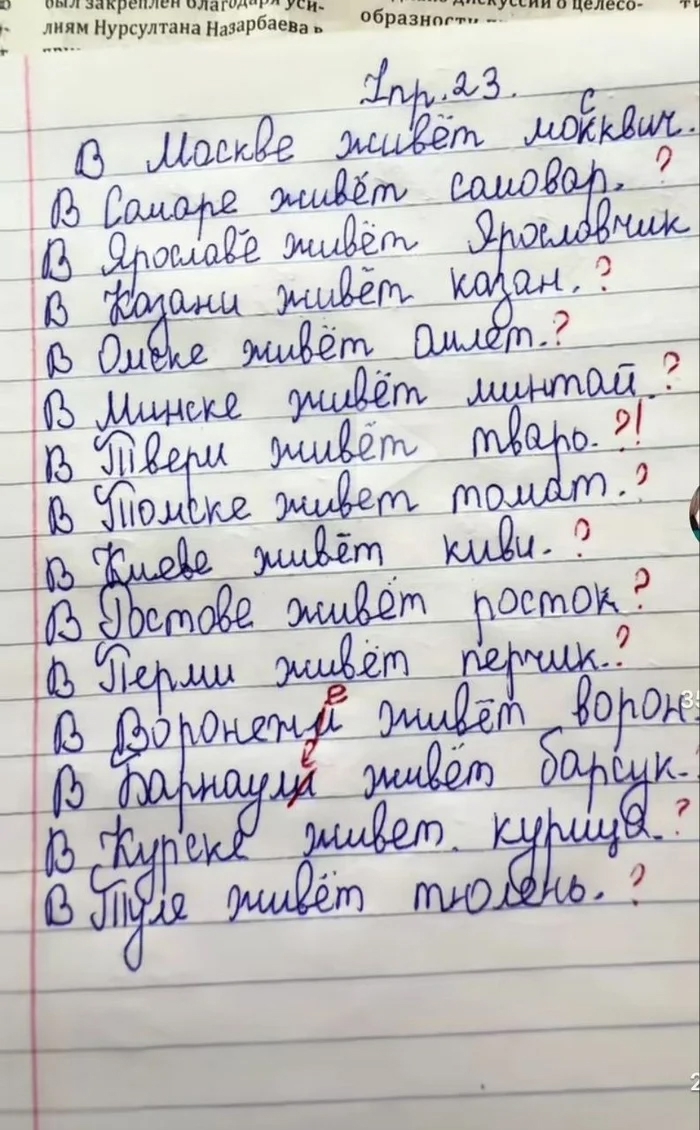 был закреплен благодаря уси-
лиям Нурсултана Назарбаева в
дискуссии о целесо-
образности
Упр. 23.
с
В Москве живёт моквич.
В Самаре живёт самовар. ?
В Ярославе живёт Ярославчик
В Казани живёт казан. ?
В Омске живёт омлет. ?
В Минске живёт минтай. ?
В Твери живёт тварь. ?!
В Томске живет томат. ?
В Киеве живёт киви. ?
В Ростове живёт росток ?
В Перми живёт перчик. ?
е
В Воронежи живёт ворон
е
В Барнаули живёт барсук.
В Курске живет. курица. ?
В Туле живёт тюлень. ?